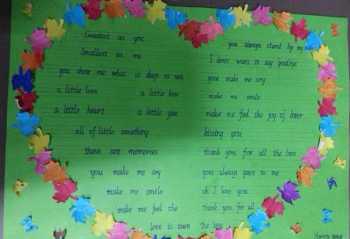 Sweetest as you
Smallest as me
you show me what is deep in sea
a little love a little kiss
a little heart a little you
all of little something
these are memories
you make me cry
make me smile
make me feel the
love is own
you always stand by my
I don't want to say goodbye
you make me cry
make me smile
make me feel the joy of
kissing you
thank you for all the love
you always gave to me
oh I love you
Thank you for all
the love